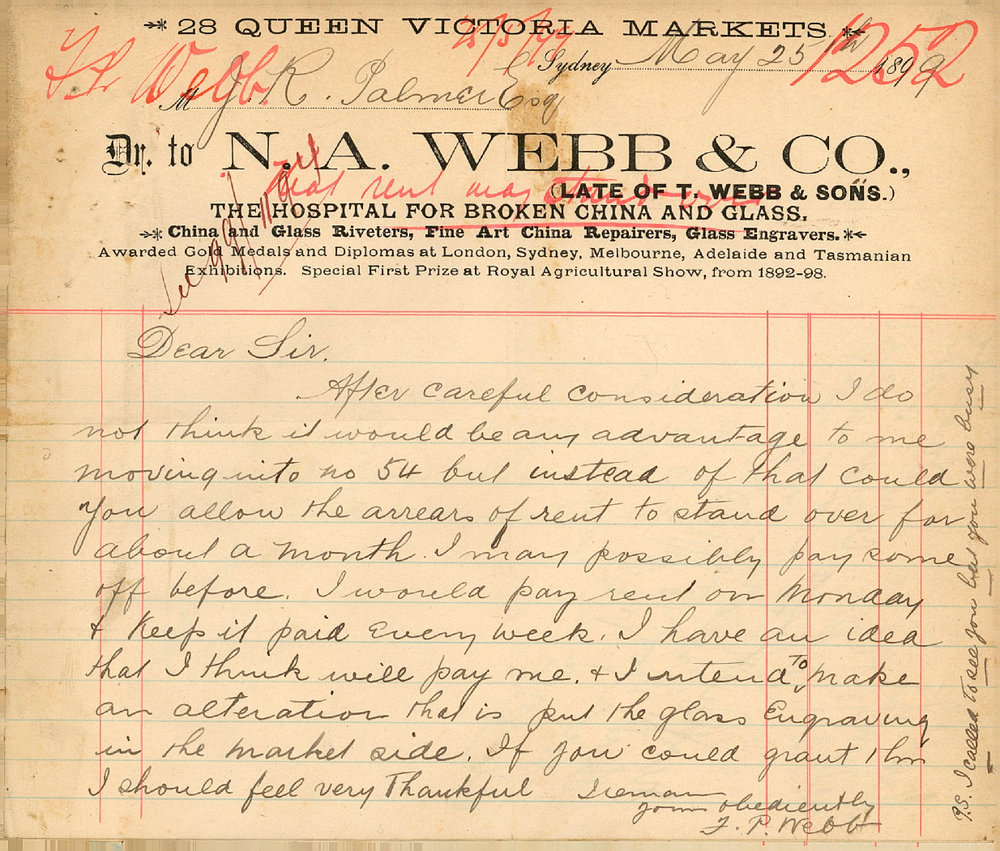 28 QUEEN VICTORIA MARKETS
25/5/99
1252
Webb.
Sydney May 25th 1899
M J. R. Palmer Esq
Dr. to N. A. WEBB & CO.,
that rent may stand over
(LATE OF T. WEBB & SONS.)
THE HOSPITAL FOR BROKEN CHINA AND GLASS.
China and Glass Riveters, Fine Art China Repairers, Glass Engravers.
Awarded Gold Medals and Diplomas at London, Sydney, Melbourne, Adelaide and Tasmanian
Exhibitions. Special First Prize at Royal Agricultural Show, from 1892-98.
Dear Sir.
After careful consideration I do
not think it would be any advantage to me
moving into no 54 but instead of that could
you allow the arrears of rent to stand over for
about a month. I may possibly pay some
off before. I would pay rent on Monday
& Keep it paid every week. I have an idea
that I think will pay me. & I intend to make
an alteration that is put the glass Engraving
in the market side. If you could grant this
I should feel very thankful I remain
yours obediently
T. P. Webb
P.S. I called to see you but you were busy